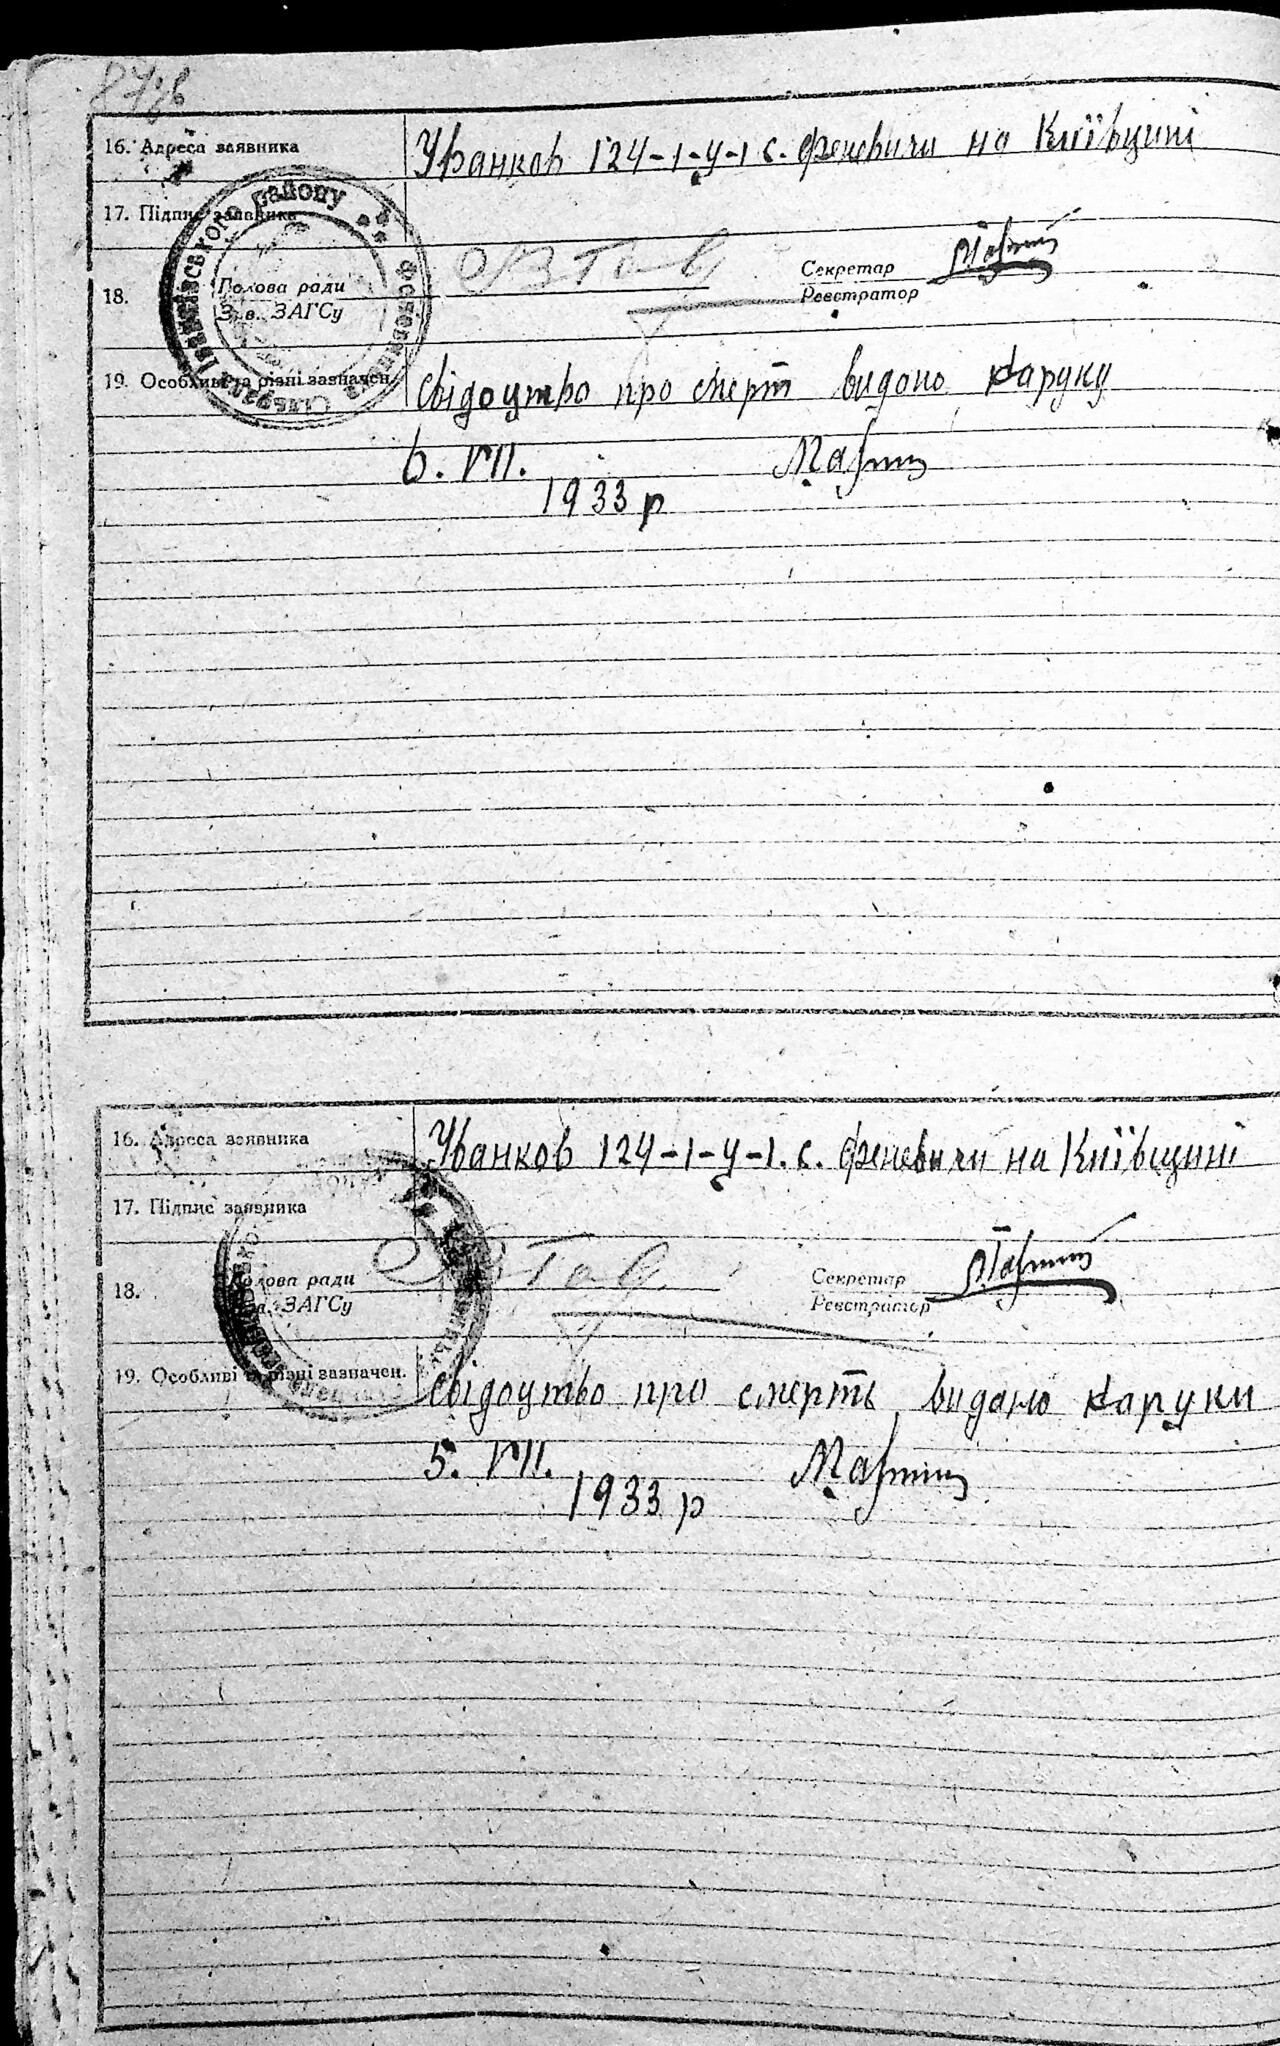 87зв
16. Адреса заявника Уванков 124-1-у-1 с. Феневичи на Київщині
17. Підпис заявника
18. Голова ради
Зав. ЗАГСу
Секретар
Реєстратор
19. Особливі та різні зазначен. свідоцтво про смерт видано Каруку
6. VII.
1933 р
Іванківського району Феневицька Сільрада
16. Адреса заявника Уванков 124-1-у-1. с. Феневичи на Київщині
17. Підпис заявника
18. Голова ради
Зав. ЗАГСу
Секретар
Реєстратор
19. Особливі та різні зазначен. свідоцтво про смерть видано Каруки
5. VII.
1933 р